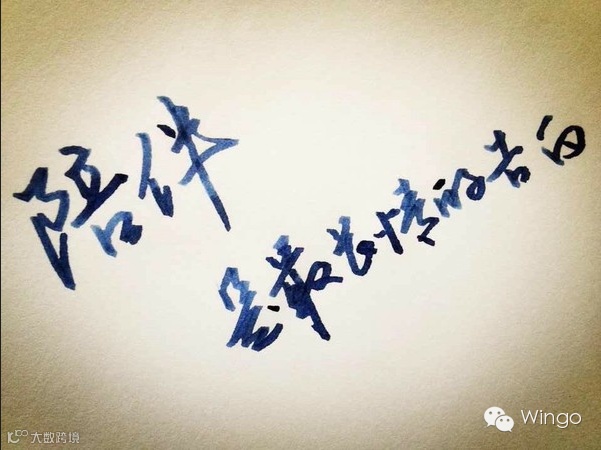 陪伴
是最长情的告白
Wingo
大数跨境